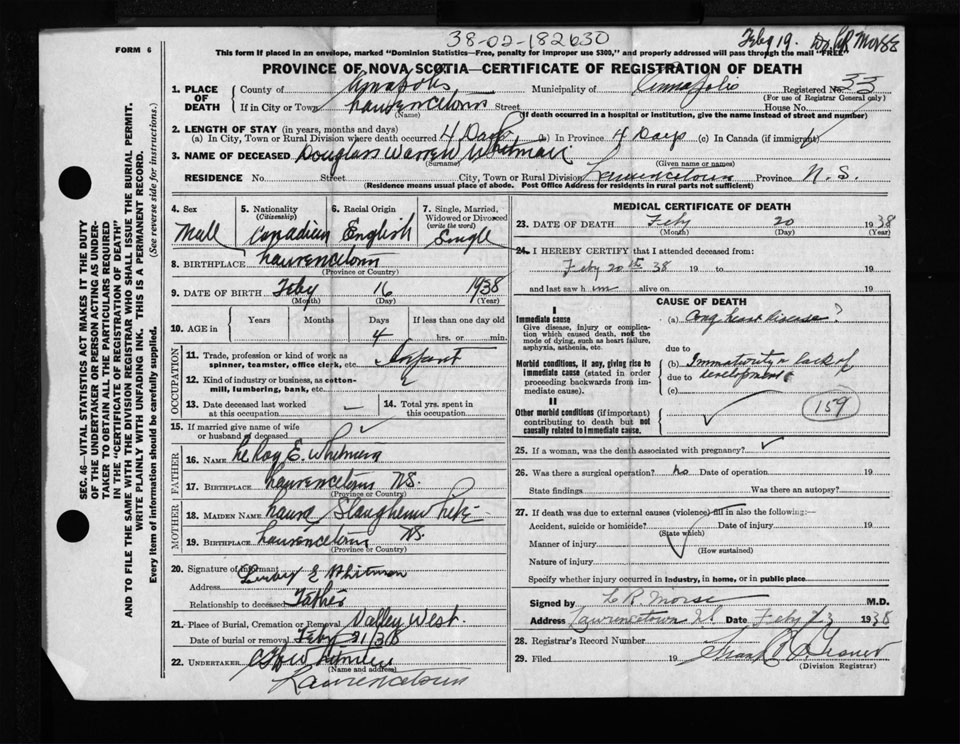 38-02-182630
Feby 19. Dr. Morse
FORM 6
This form if placed in an envelope, marked "Dominion Statistics—Free, penalty for improper use $300," and properly addressed will pass through the mail "FREE"
PROVINCE OF NOVA SCOTIA—CERTIFICATE OF REGISTRATION OF DEATH
1. PLACE OF DEATH
County of Annapolis Municipality of Annapolis Registered No. 33
(For use of Registrar General only)
If in City or Town Lawrencetown Street House No.
(Name) (If death occurred in a hospital or institution, give the name instead of street and number)
2. LENGTH OF STAY (in years, months and days)
(a) In City, Town or Rural Division where death occurred 4 Days (b) In Province 4 Days (c) In Canada (if immigrant)
3. NAME OF DECEASED Douglass Warren Whitman
(Surname) (Given name or names)
RESIDENCE No. Street City, Town or Rural Division Lawrencetown Province N. S.
(Residence means usual place of abode. Post Office Address for residents in rural parts not sufficient)
4. Sex Male
5. Nationality (Citizenship) Canadian
6. Racial Origin English
7. Single, Married, Widowed or Divorced (write the word) Single
8. BIRTHPLACE Lawrencetown
(Province or Country)
9. DATE OF BIRTH Feby 16 1938
(Month) (Day) (Year)
10. AGE in Years Months Days If less than one day old
4 hrs. or min.
OCCUPATION
11. Trade, profession or kind of work as spinner, teamster, office clerk, etc. Infant
12. Kind of industry or business, as cotton-mill, lumbering, bank, etc.
13. Date deceased last worked at this occupation —
14. Total yrs. spent in this occupation
15. If married give name of wife or husband of deceased ✓
FATHER
16. NAME LeRoy E. Whitman
17. BIRTHPLACE Lawrencetown NS.
(Province or Country)
MOTHER
18. MAIDEN NAME Laura Slaughenwhite
19. BIRTHPLACE Lawrencetown NS.
(Province or Country)
20. Signature of informant E Whitman
Address
Relationship to deceased Father
21. Place of Burial, Cremation or Removal Valley West.
Date of burial or removal Feby 21/38
22. UNDERTAKER
(Name and address)
Lawrencetown
MEDICAL CERTIFICATE OF DEATH
23. DATE OF DEATH Feby 20 1938
(Month) (Day) (Year)
24. I HEREBY CERTIFY that I attended deceased from:
Feby 20th 38 19 to 19
and last saw him alive on 19
CAUSE OF DEATH
I
Immediate cause
Give disease, injury or complication which caused death, not the mode of dying, such as heart failure, asphyxia, asthenia, etc.
(a) Cong heart disease?
due to
Morbid conditions, if any, giving rise to immediate cause (stated in order proceeding backwards from immediate cause).
(b) Immaturity & lack of
due to development
(c)
II
Other morbid conditions (if important) contributing to death but not causally related to immediate cause.
✓
159
25. If a woman, was the death associated with pregnancy? ✓
26. Was there a surgical operation? No Date of operation 19
State findings Was there an autopsy?
27. If death was due to external causes (violence) fill in also the following:—
Accident, suicide or homicide? Date of injury 19
(State which)
Manner of injury
(How sustained)
Nature of injury
Specify whether injury occurred in industry, in home, or in public place
Signed by L R Morse M.D.
Address Lawrencetown Date Feby 23 1938
28. Registrar's Record Number
29. Filed 19
(Division Registrar)
SEC. 46—VITAL STATISTICS ACT MAKES IT THE DUTY
OF THE UNDERTAKER OR PERSON ACTING AS UNDER-
TAKER TO OBTAIN ALL THE PARTICULARS REQUIRED
IN THE "CERTIFICATE OF REGISTRATION OF DEATH"
AND TO FILE THE SAME WITH THE DIVISION REGISTRAR WHO SHALL ISSUE THE BURIAL PERMIT.
WRITE PLAINLY WITH UNFADING INK. THIS IS A PERMANENT RECORD.
Every item of information should be carefully supplied. (See reverse side for instructions.)